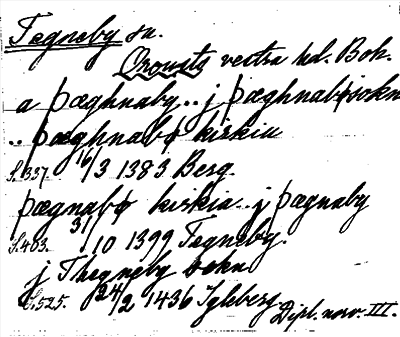 Tegneby sn.
Orowsts vestra hd. Boh.
a þæghnaby .. j þæghnabøsokn
.. þæghnabø kirkiu
S. 337. 16/3 1383 Berg.
þægnabø kirkia .. j þægnaby
S. 403. 31/10 1399 Tegneby.
j Thegneby sokn
S. 525. 24/2 1436 Igleberg
Dipl. norv. III.